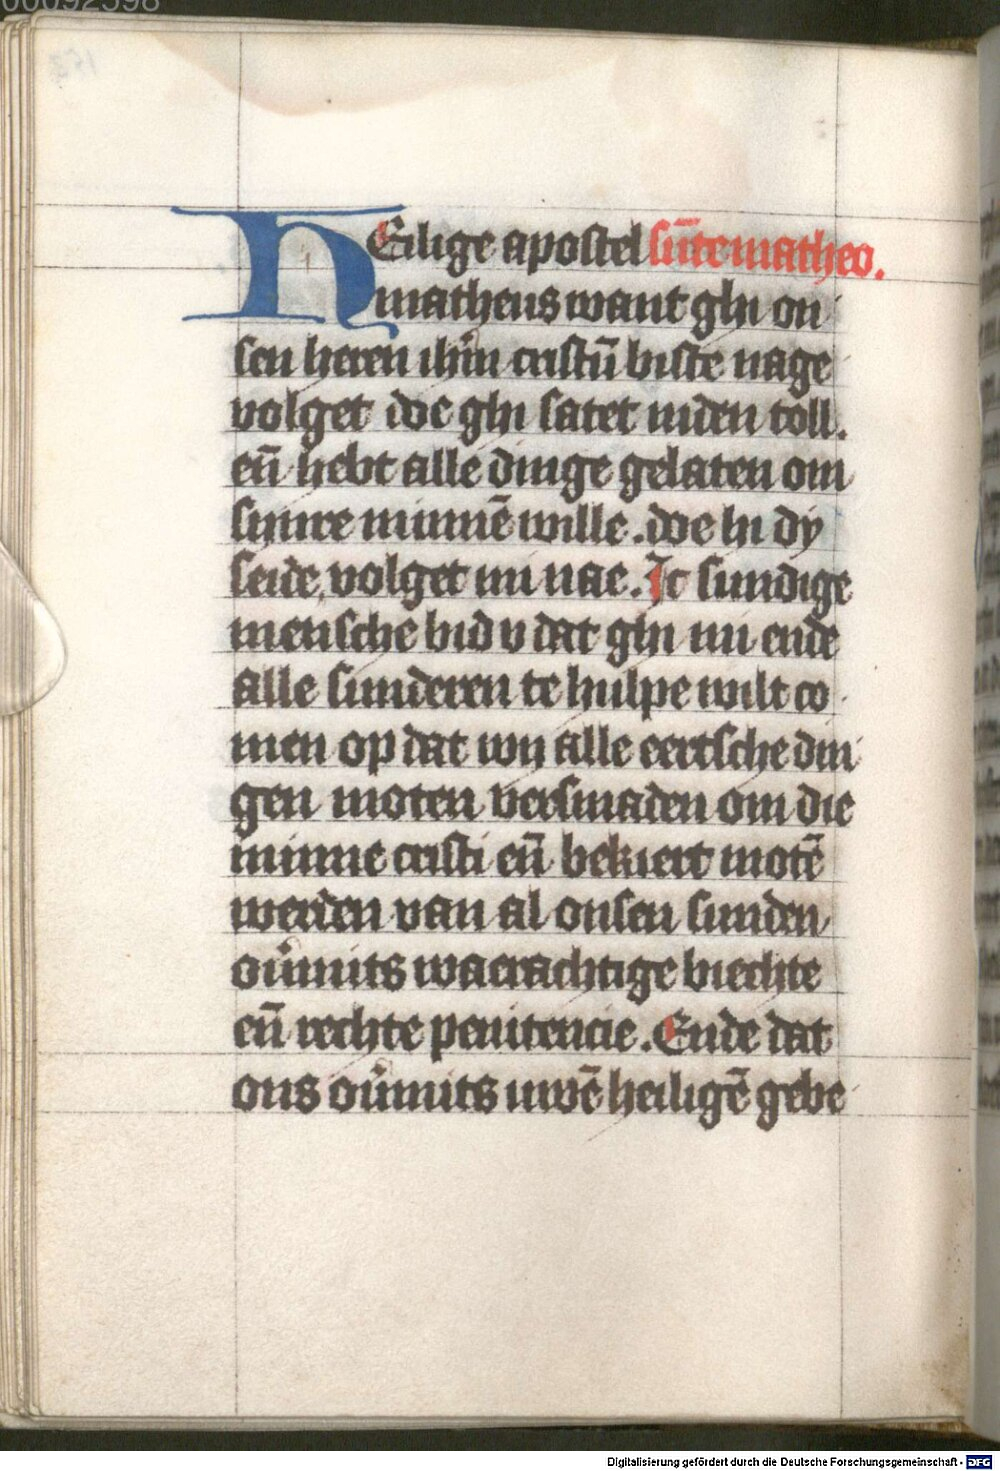 00092598
HEilige apostel sūte matheo.
matheus want ghi on
sen heren ihm̄ cristū biste nage
volget doe ghi satet inden toll.
en̄ hebt alle dinge gelaten om
synre minnē wille. doe hi dy
seide, volget mi nae. Ic sundige
mensche bid v dat ghi mi ende
alle sunderen te hulpe wilt co
men op dat wy alle eertsche din
gen moten versmaden om die
minne cristi en̄ bekiert motē
werden van al onsen sunden,
ou̓mits waerachtige biechte
en̄ rechte penitencie. Ende dat
ons ou̓mits uwē heiligē gebe
Digitalisierung gefördert durch die Deutsche Forschungsgemeinschaft - DFG